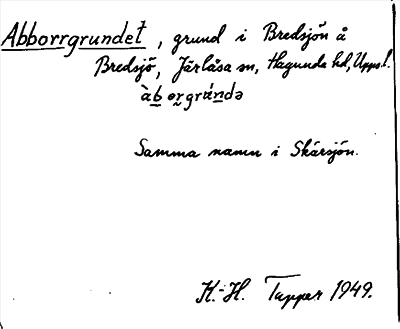 Abborrgrundet, grund i Bredsjön å
Bredsjö, Järlåsa sn, Hagunda hd, Uppsl.
àb̲or̰grún̲də
Samma namn i Skärsjön.
K.-H. Tapper 1949.